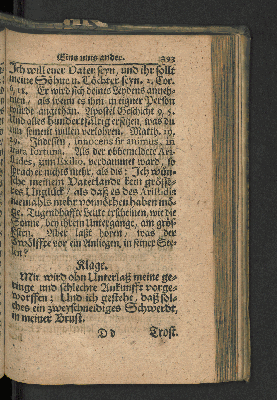 Eins umbs ander. 393
Ich will euer Vater seyn, und ihr sollt
meine Söhne u. Töchter seyn. 2. Cor.
6, 18. Er wird sich deines Leydens anneh-
men, als wenn es ihm in eigner Person
würde angethan. Apostel Geschicht 9, 5.
Und alles hundertfältig ersetzen, was du
um seinent willen verlohren. Matth. 19,
29. Indessen, innocens sit animus, in
Als der obbemeldete Ari-
stides, zum Exilio, verdammet ward, so
sprach er nichts mehr, als diß: Ich wün-
sche meinem Vaterlande kein grösse-
res Unglück, als daß es des Aristidis
niemahls mehr vonnöthen haben mö-
ge. Tugendhaffte Leute erscheinen, wie die
Sonne, bey ihrem Untergange, am grös-
sesten. Aber laßt hören, was der
Zwölffte vor ein Anliegen, in seiner See-
len?
Klage.
Mir wird ohn Unterlaß meine ge-
ringe und schlechte Ankunfft vorge-
worffen: Und ich gestehe, daß sol-
ches ein zweyschneidiges Schwerdt,
in meiner Brust.
D d Trost.